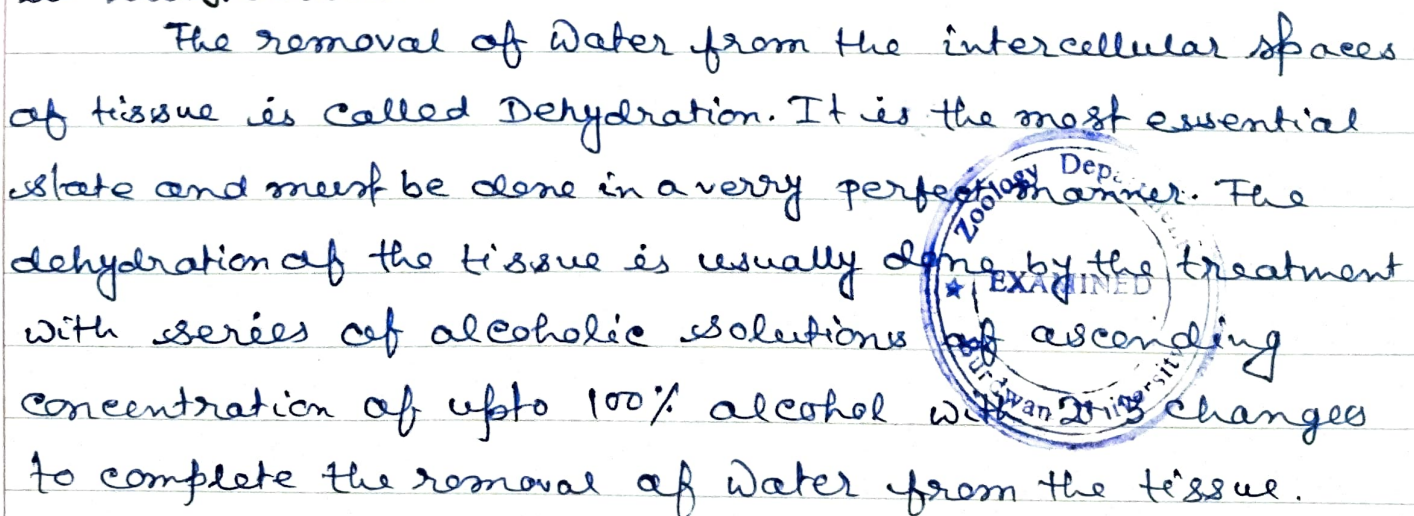 The removal of Water from the intercellular spaces
of tissue is called Dehydration. It is the most essential
state and must be done in a verry perfect manner. The
dehydration of the tissue is usually done by the treatment
with series of alcoholic solutions of ascending
concentration of upto 100% alcohol with 2 changes
to complete the removal of Water from the tissue.
Zoology Dep
EXAMINED
Burdwan University